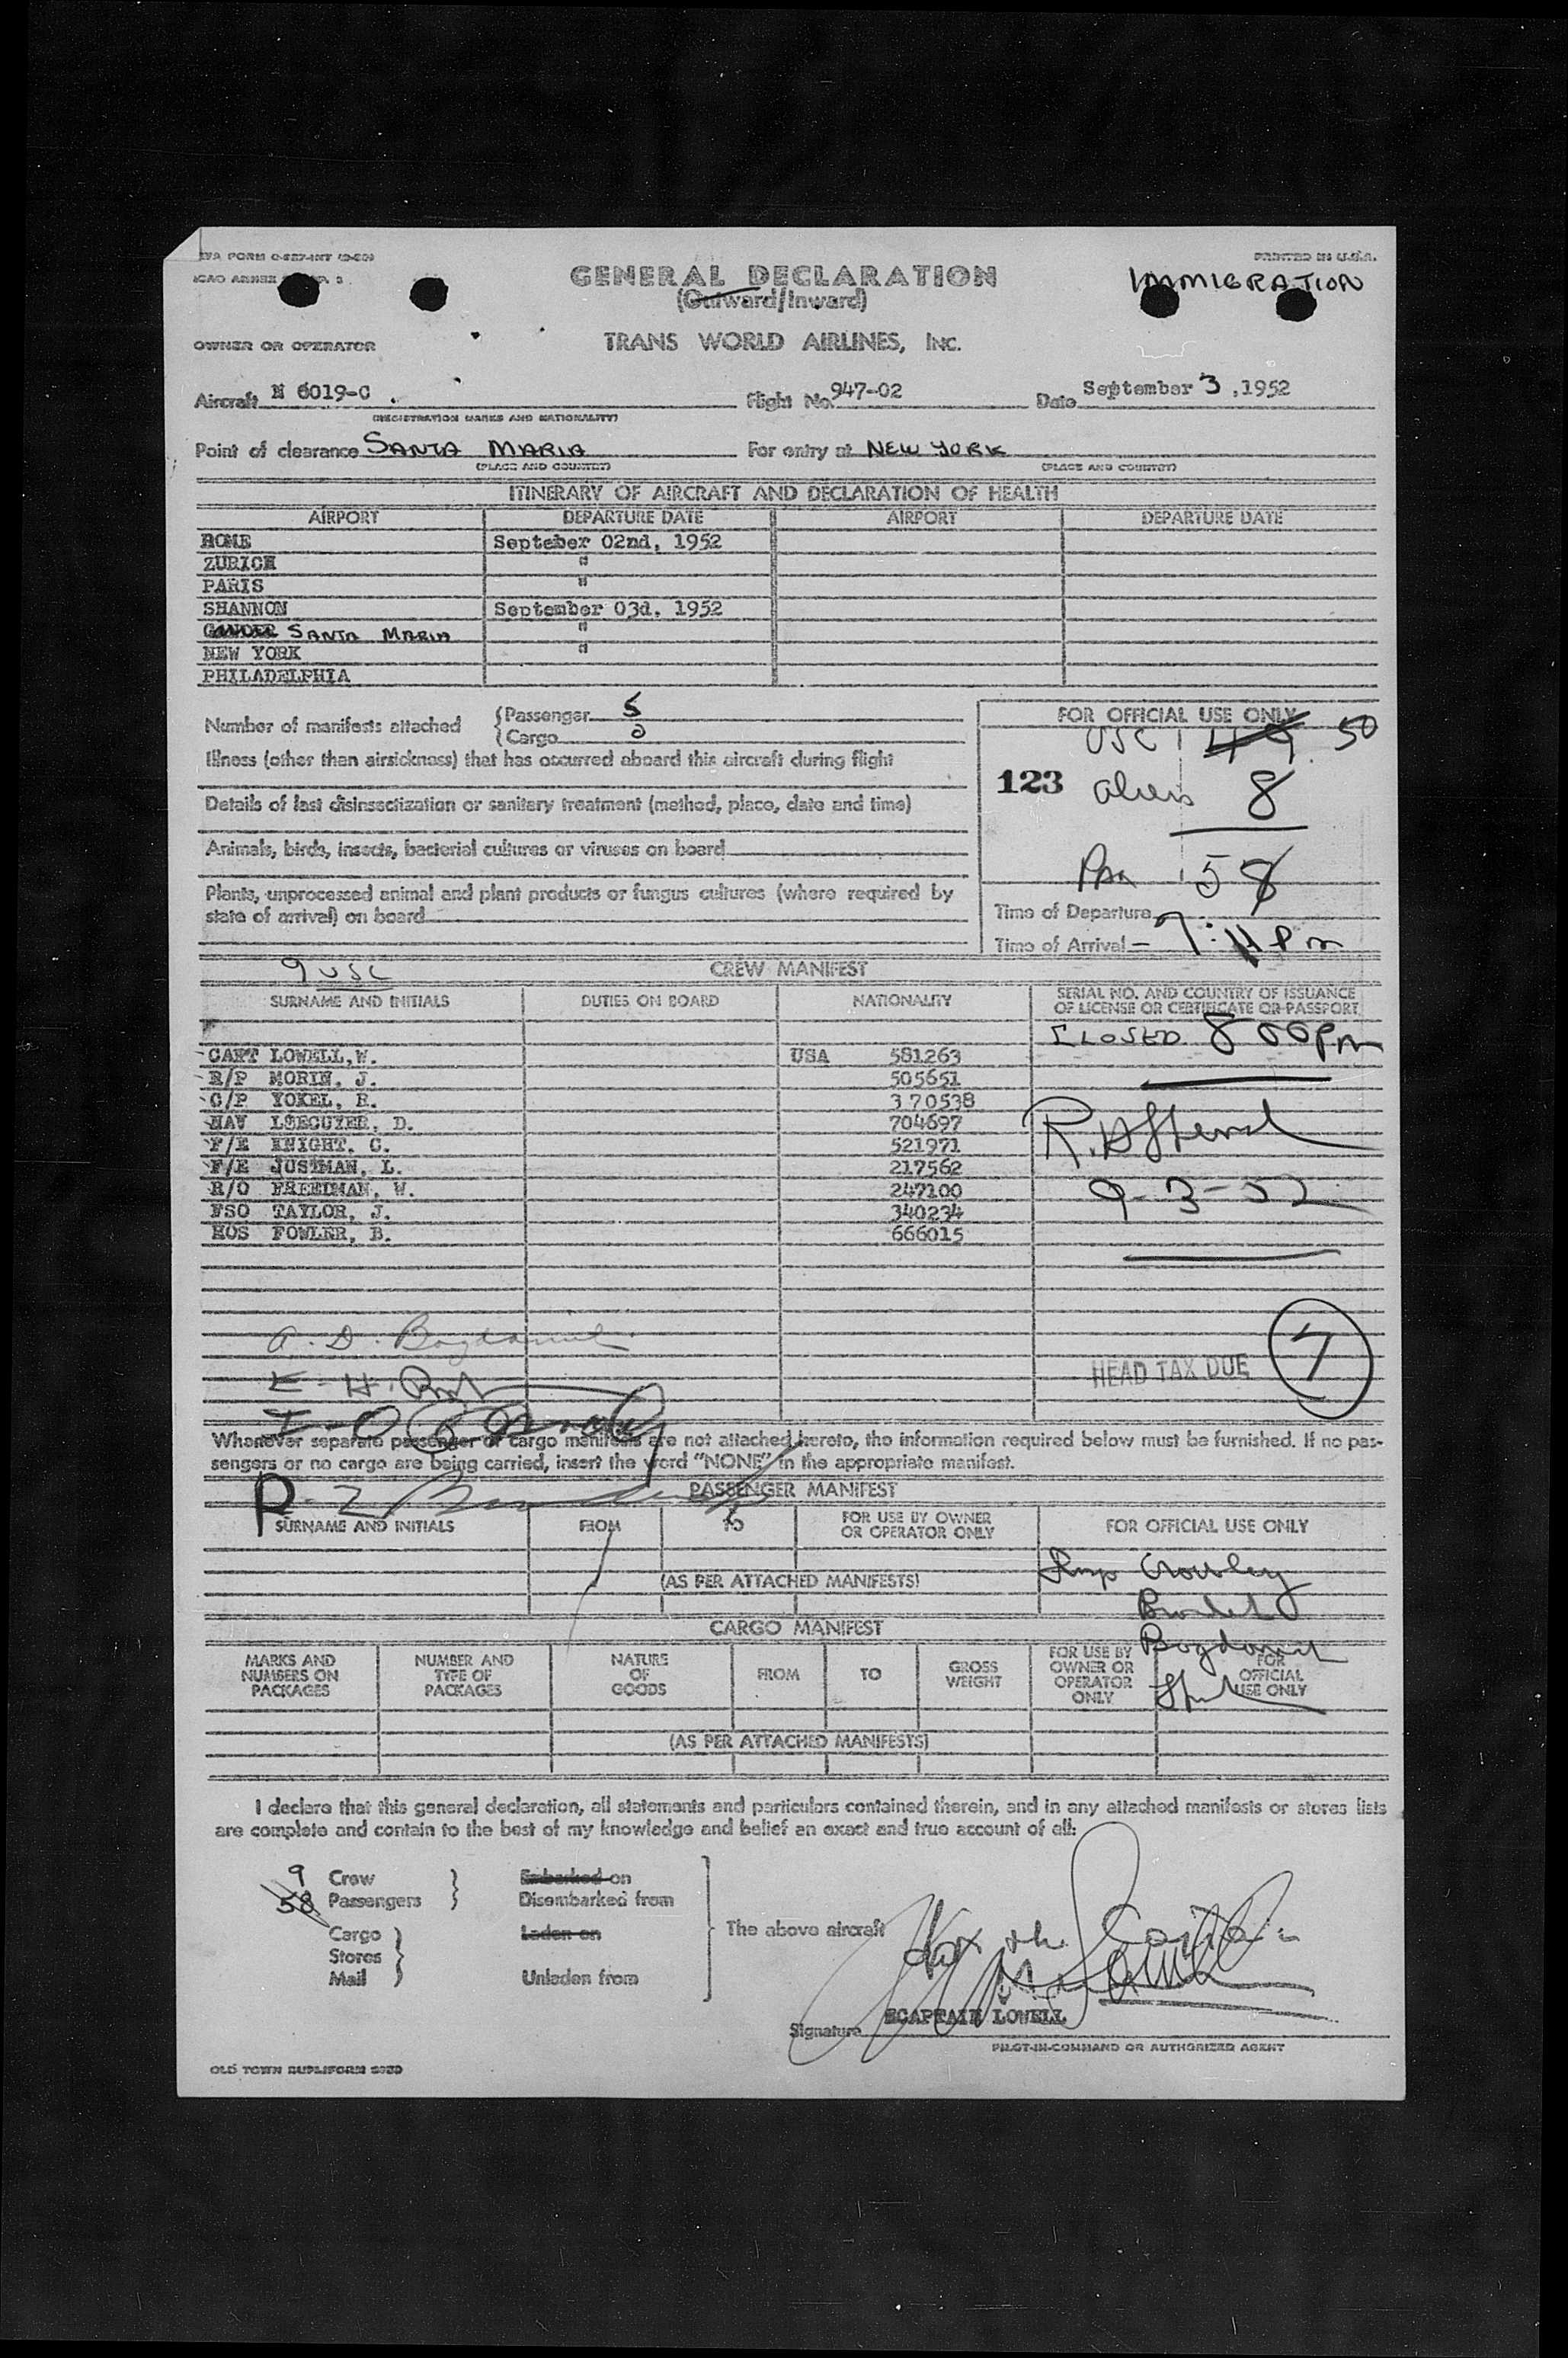 TWA FORM O-527-INT (2-50)
PRINTED IN U.S.A.
ICAO ANNEX
GENERAL DECLARATION
IMMIGRATION
(Outward/Inward)
OWNER OR OPERATOR
TRANS WORLD AIRLINES, INC.
Aircraft N 6019-C Flight No. 947-02 Date September 3, 1952
(REGISTRATION MARKS AND NATIONALITY)
Point of clearance SANTA MARIA For entry at NEW YORK
(PLACE AND COUNTRY) (PLACE AND COUNTRY)
ITINERARY OF AIRCRAFT AND DECLARATION OF HEALTH
AIRPORT DEPARTURE DATE AIRPORT DEPARTURE DATE
ROME Septeber 02nd, 1952
ZURICH "
PARIS "
SHANNON September 03d, 1952
GANDER SANTA MARIA "
NEW YORK "
PHILADELPHIA
Number of manifests attached
Passenger 5
Cargo
Illness (other than airsickness) that has occurred aboard this aircraft during flight
Details of last disinsectization or sanitary treatment (method, place, date and time)
Animals, birds, insects, bacterial cultures or viruses on board
Plants, unprocessed animal and plant products or fungus cultures (where required by
state of arrival) on board
FOR OFFICIAL USE ONLY
USC 49 50
123 aliens 8
Pax 58
Time of Departure
Time of Arrival 7:11 Pm
9 USC
CREW MANIFEST
SURNAME AND INITIALS DUTIES ON BOARD NATIONALITY SERIAL NO. AND COUNTRY OF ISSUANCE
OF LICENSE OR CERTIFICATE OR PASSPORT
CLOSED 8 00 pm
CAPT LOWELL,W. USA 581263
R/P MORIN, J. 505651
C/P YOKEL, R. 370538
NAV LSECUYER, D. 704697
F/E KNIGHT, C. 521971
F/E JUSTMAN, L. 217562
R/O FREEDMAN, W. 247100
FSO TAYLOR, J. 340234
HOS FOWLER, B. 666015
9-3-52
HEAD TAX DUE 7
Whenever separate passenger or cargo manifests are not attached hereto, the information required below must be furnished. If no pas-
sengers or no cargo are being carried, insert the word "NONE" in the appropriate manifest.
PASSENGER MANIFEST
SURNAME AND INITIALS FROM TO FOR USE BY OWNER
OR OPERATOR ONLY FOR OFFICIAL USE ONLY
(AS PER ATTACHED MANIFESTS)
Insp Crowley
CARGO MANIFEST
MARKS AND
NUMBERS ON
PACKAGES
NUMBER AND
TYPE OF
PACKAGES
NATURE
OF
GOODS
FROM
TO
GROSS
WEIGHT
FOR USE BY
OWNER OR
OPERATOR
ONLY
FOR
OFFICIAL
USE ONLY
(AS PER ATTACHED MANIFESTS)
I declare that this general declaration, all statements and particulars contained therein, and in any attached manifests or stores lists
are complete and contain to the best of my knowledge and belief an exact and true account of all:
9 Crew
58 Passengers
Cargo
Stores
Mail
Embarked on
Disembarked from
Laden on
Unladen from
The above aircraft
Signature CAPTAIN LOWELL
PILOT-IN-COMMAND OR AUTHORIZED AGENT
OLD TOWN DUPLIFORM